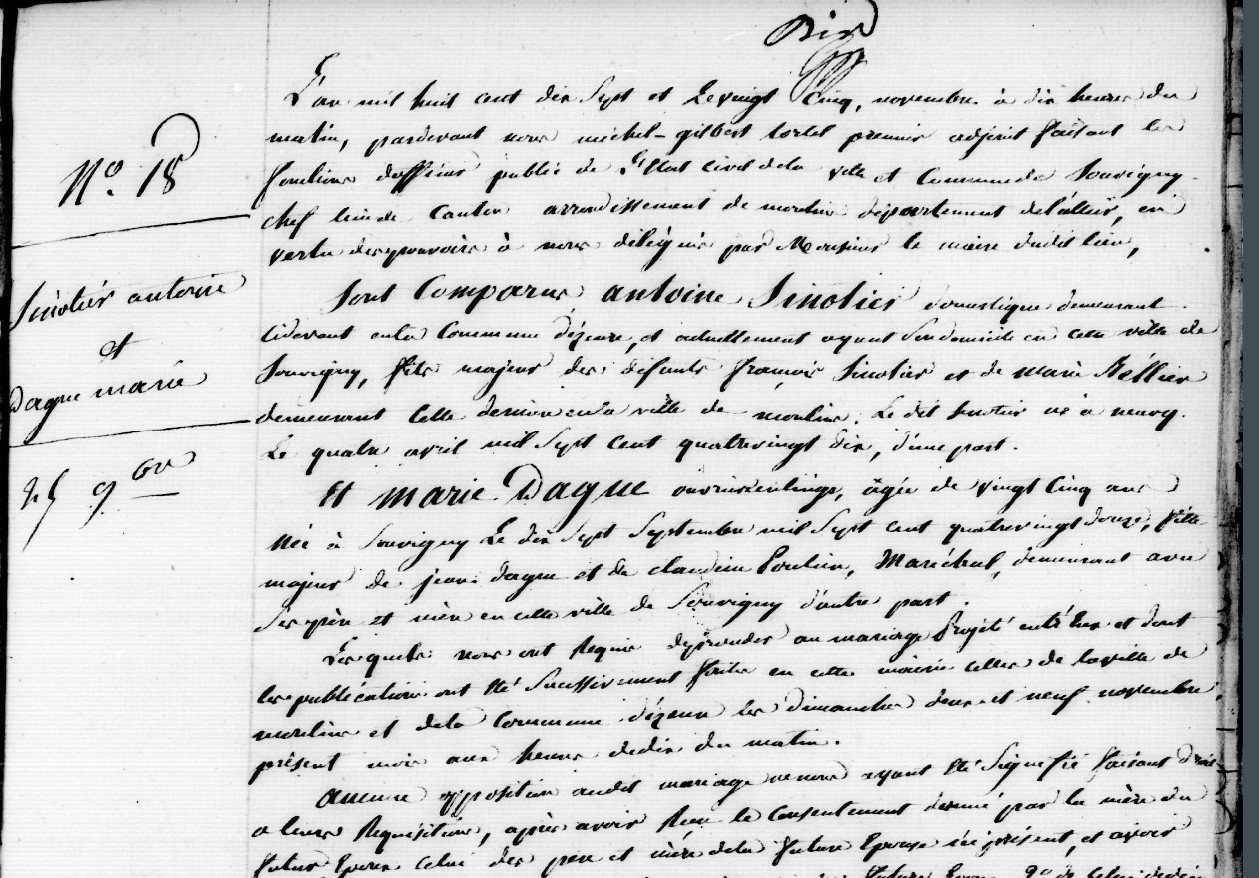 Dix
N° 18
Sinotier antoine
et
Dague marie
25 9bre
L'an mil huit cent dix Sept et Le vingt Cinq, novembre à dix heures du
matin, pardevant nous michel-gilbert tortel premier adjoint faisant les
fonctions d'officier public de L'Etat civil de la ville et Commune de Souvigny
chef lieu de Canton arrondissement de moulins département de l'allier, en
vertu des pouvoirs à nous délégués par Monsieur le maire dudit lieu,
Sont Comparus antoine Sinotier domestique demeurant
cidevant en la Commune d'izeure, et actuellement ayant Son domicile en cette ville de
Souvigny, fils majeur des défunts françois Sinotier et de marie
demeurant Cette dernière en la ville de moulins. Le dit Sinotier né à neuvy
Le quatre avril mil Sept cent quatrevingt dix, d'une part.
Et marie Dague ouvrière en linge, âgée de vingt Cinq ans
née à Souvigny Le dix Sept Septembre mil Sept cent quatrevingt douze, fille
majeur de jean dague et de claudine Poulin, Maréchal, demeurant avec
Ses père et mère en cette ville de Souvigny d'autre part.
Lesquels nous ont Requis de procéder au mariage Projeté entr'Eux et dont
les publications ont Eté Successivement faites en cette mairie celles de la ville de
moulins et de la Commune d'izeure les dimanches deux et neuf novembre
présent mois aux heures de dix du matin.
aucune opposition audit mariage ne nous ayant Eté Signifié faisant droit
a leurs Requisition, après avoir Reçu le Consentement donné par la mère du
futur Epoux Celui des père et mère de la future Epouse ici présent, et avoir